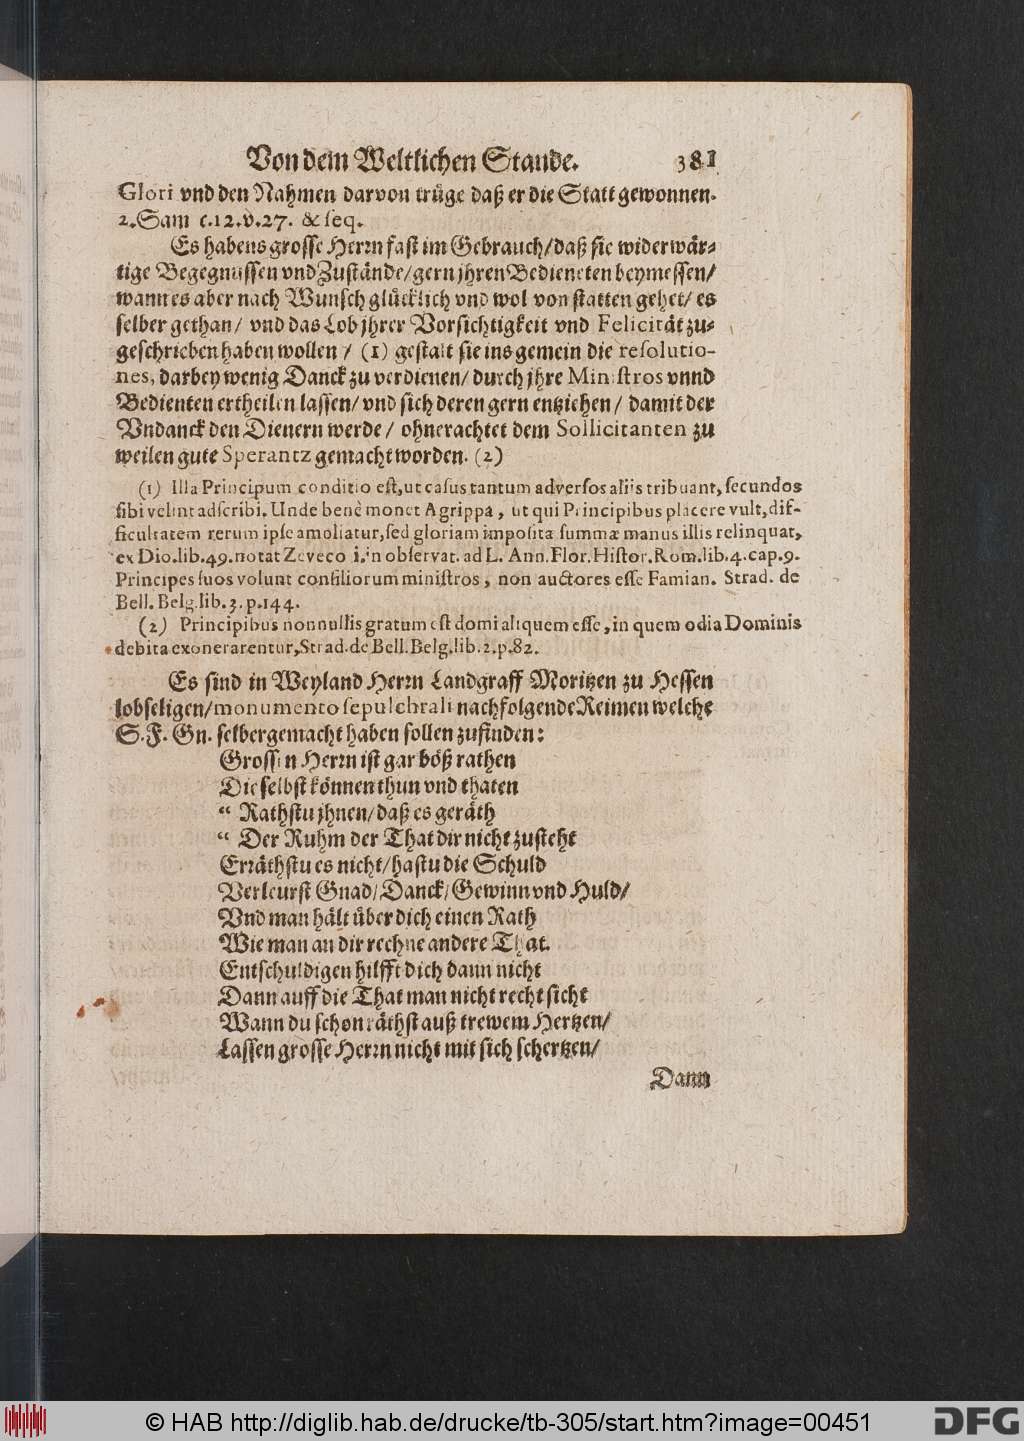 Von dem Weltlichen Stande. 381
Glori vnd den Nahmen darvon trüge daß er die Statt gewonnen.
2. Sam c. 12. v. 27. & seq.
Es habens grosse Herrn fast im Gebrauch/ daß sie widerwär-
tige Begegnussen vnd Zustände/ gern jhren Bedieneten beymessen/
wann es aber nach Wunsch glücklich vnd wol von statten gehet/ es
selber gethan/ vnd das Lob jhrer Vorsichtigkeit vnd Felicität zu-
geschrieben haben wollen / (1) gestalt sie ins gemein die resolutio-
nes, darbey wenig Danck zu verdienen/ durch jhre Ministros vnnd
Bedienten ertheilen lassen/ vnd sich deren gern entziehen/ damit der
Vndanck den Dienern werde/ ohnerachtet dem Sollicitanten zu
weilen gute Sperantz gemacht worden. (2)
(1) Illa Principum conditio est, ut casus tantum adversos aliis tribuant, secundos
sibi velint adscribi. Unde benè monet Agrippa, ut qui Principibus placere vult, dif-
ficultatem rerum ipse amoliatur, sed gloriam impositæ summæ manus illis relinquat,
ex Dio. lib. 49. notat Zeveco i. in observat. ad L. Ann. Flor. Histor. Rom. lib. 4. cap. 9.
Principes suos volunt consiliorum ministros, non auctores esse Famian. Strad. de
Bell. Belg. lib. 3. p. 144.
(2) Principibus nonnullis gratum est domi aliquem esse, in quem odia Dominis
debita exonerarentur, Strad. de Bell. Belg. lib. 2. p. 82.
Es sind in Weyland Herrn Landgraff Moritzen zu Hessen
lobseligen/ monumento sepulchrali nachfolgende Reimen welche
S. F. Gn. selber gemacht haben sollen zufinden:
Grossen Herrn ist gar böß rathen
Die selbst können thun vnd thaten
“ Rathstu jhnen/ daß es geräth
“ Der Ruhm der That dir nicht zusteht
Erräthstu es nicht/ hastu die Schuld
Verleurst Gnad/ Danck/ Gewinn vnd Huld/
Vnd man hält über dich einen Rath
Wie man an dir rechne andere That.
Entschuldigen hilfft dich dann nicht
Dann auff die That man nicht recht sicht
Wann du schon räthst auß trewem Hertzen/
Lassen grosse Herrn nicht mit sich schertzen/
Dann
© HAB http://diglib.hab.de/drucke/tb-305/start.htm?image=00451
DFG